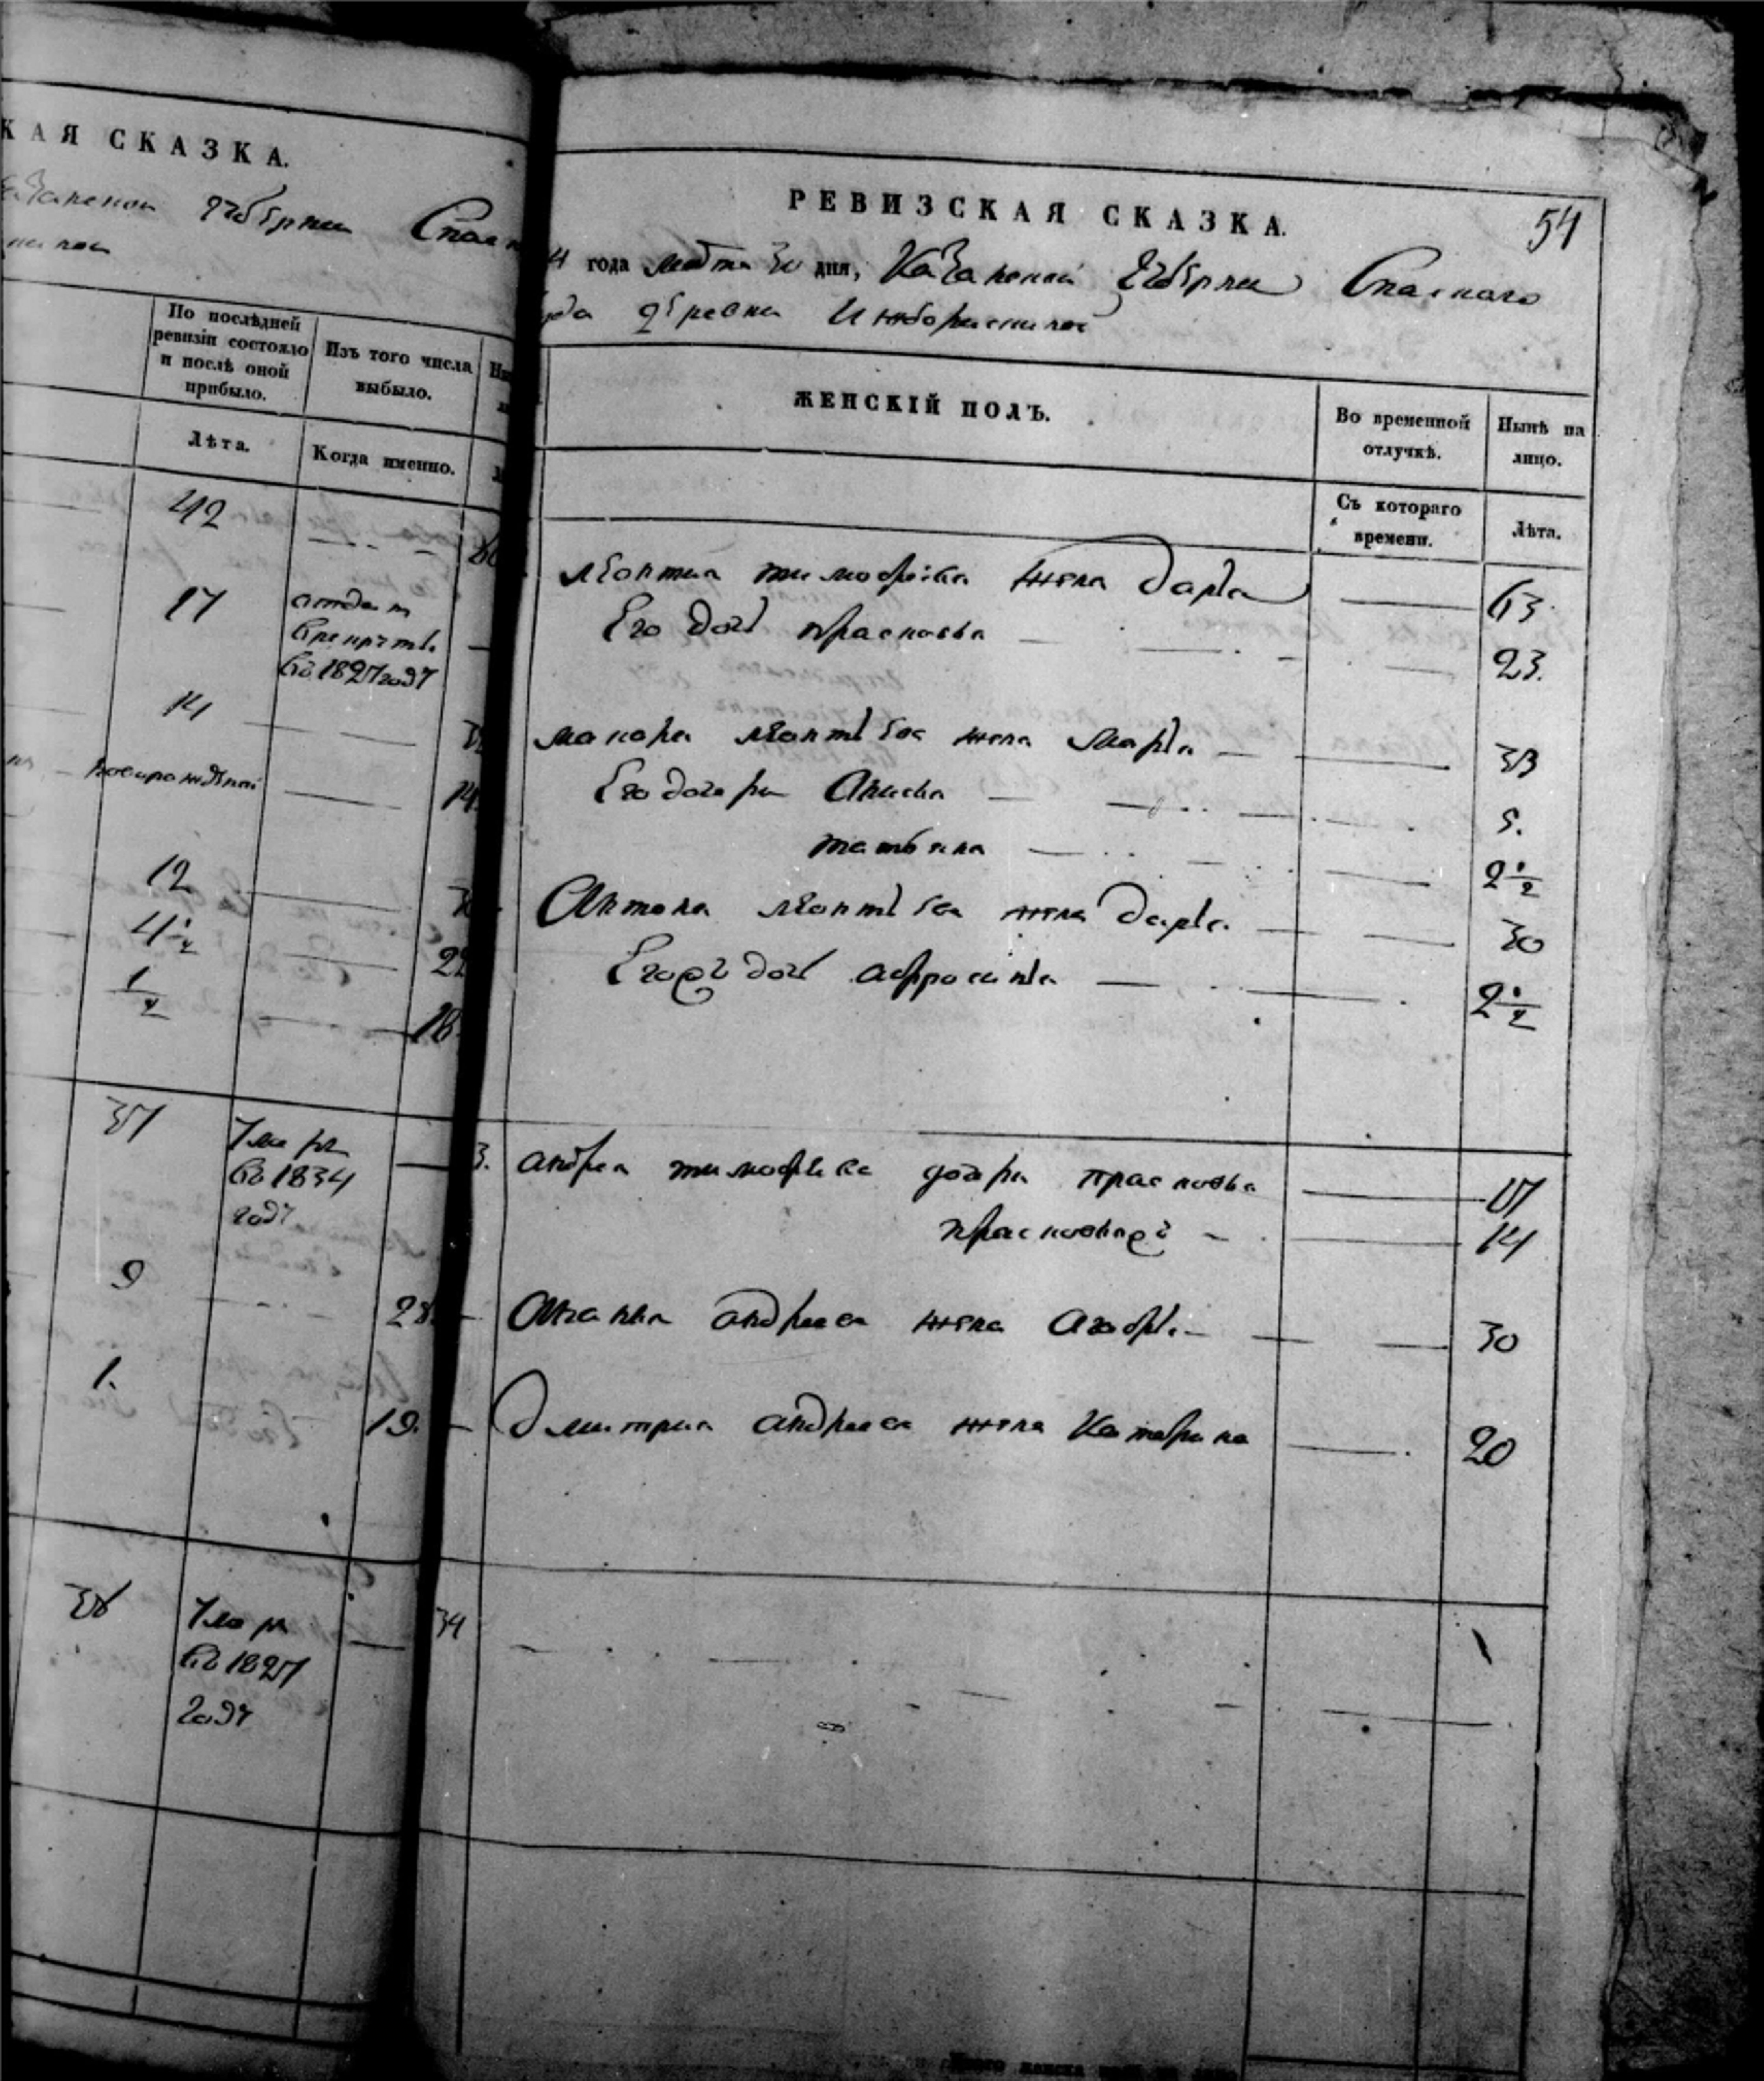 КАЯ СКАЗКА.
губерни Спас
По послѣдней
ревизіи состояло
и послѣ оной
прибыло.
Изъ того числа
выбыло.
Лѣта.
Когда именно.
42
17
отдан
в рекруты
въ 1827 году
14
новорожденной
14
12
4 1/2
22
1/2
18
37
умре
въ 1834
году
9
28
1.
19.
36
умре
въ 1827
году
РЕВИЗСКАЯ СКАЗКА.
54
года марта 30 дня, Казанской губерни Спаскаго
деревни
ЖЕНСКІЙ ПОЛЪ.
Во временной
отлучкѣ.
Нынѣ на
лицо.
Съ котораго
времени.
Лѣта.
леонтия тимофеева жена дарья 63
Его дочь прасковья 23.
макара леонтьева жена марья 33
Его дочери Анисья 5.
татьяна 2 1/2
Антона леонтьева жена дарья 30
Егожъ дочь афросинья 2 1/2
3. андрея тимофеева дочери прасковья 17
прасковья жъ 14
Онания андреева жена агафья 30
Дмитрия андреева жена Катерина 20
34